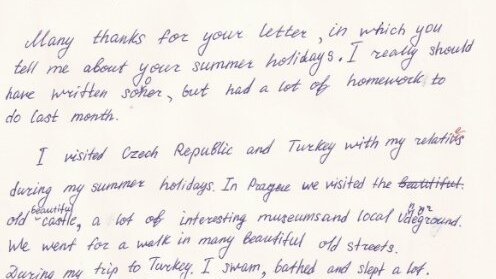 Many thanks for your letter, in which you
tell me about your summer holidays. I really should
have written soner, but had a lot of homework to
do last month.
I visited Czech Republic and Turkey with my relativs
during my summer holidays. In Prague we visited the beautiful.
old beautiful castle, a lot of interesting museums and local undeground.
We went for a walk in many beautiful old streets.
During my trip to Turkey. I swam, bathed and slept a lot.